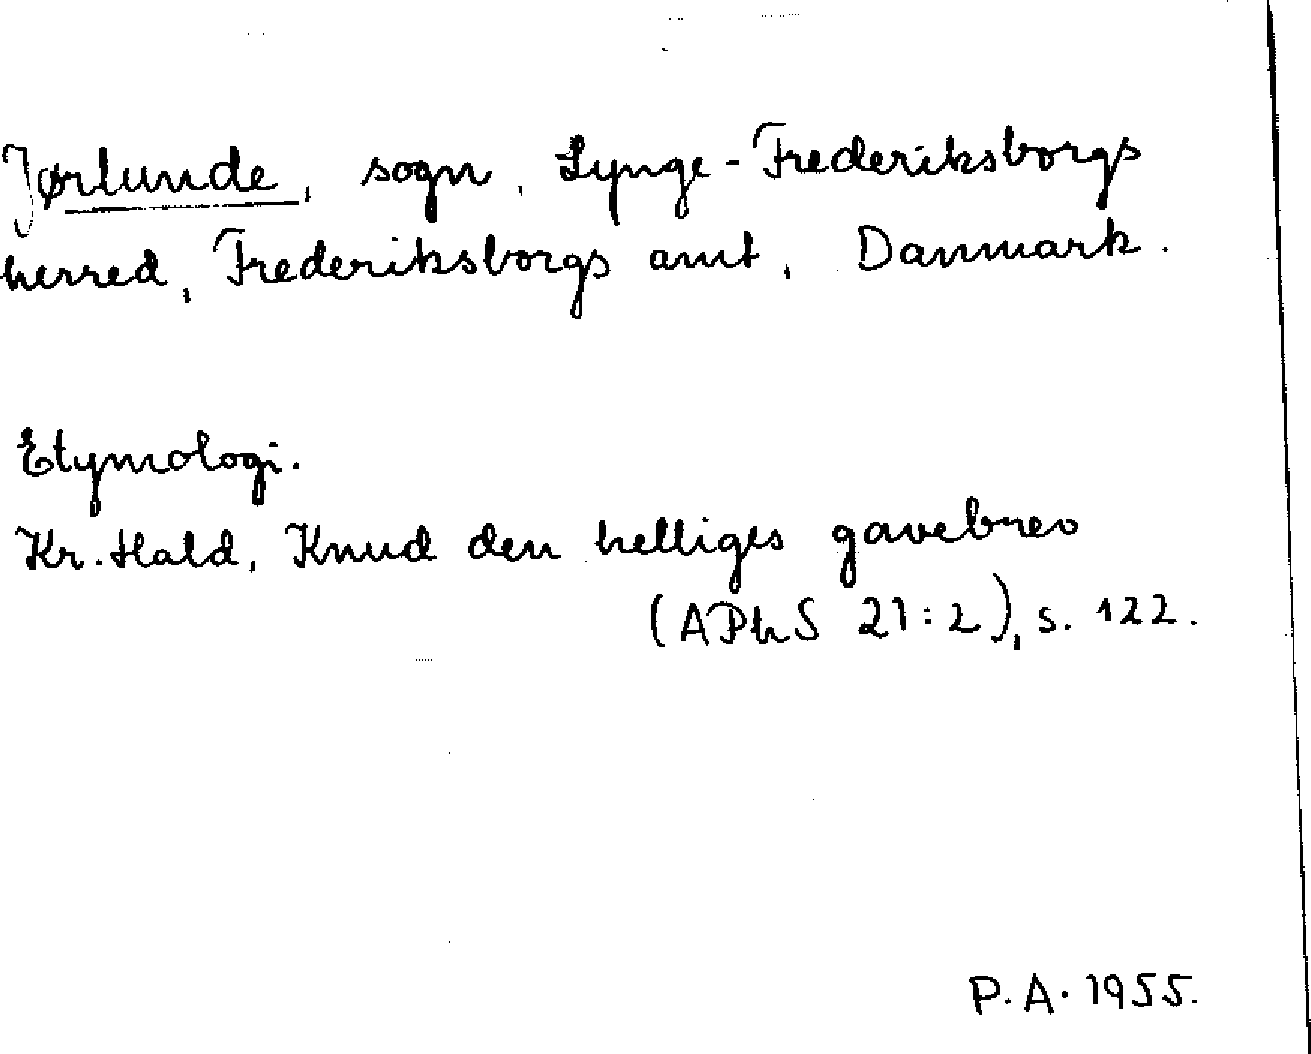 Jørlunde, sogn, Lynge-Frederiksborgs
herred, Frederiksborgs amt, Danmark.
Etymologi.
Kr. Hald, Knud den helliges gavebrev
(APhS 21:2), s. 122.
P.A. 1955.